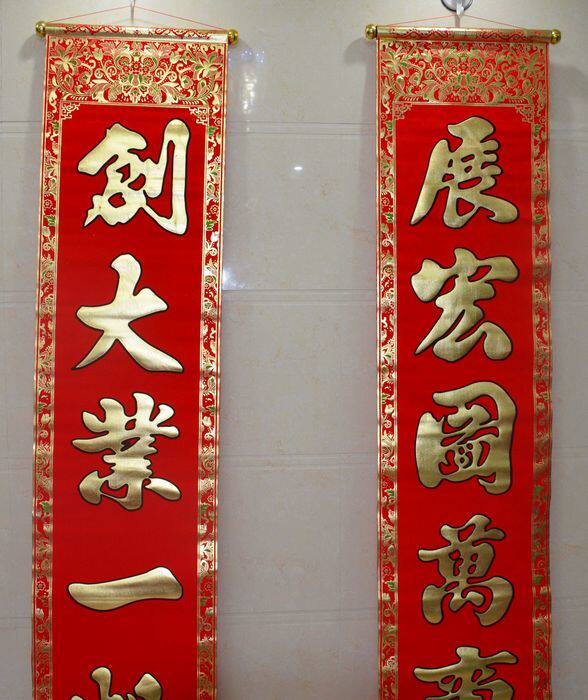 展宏圖萬事
創大業一